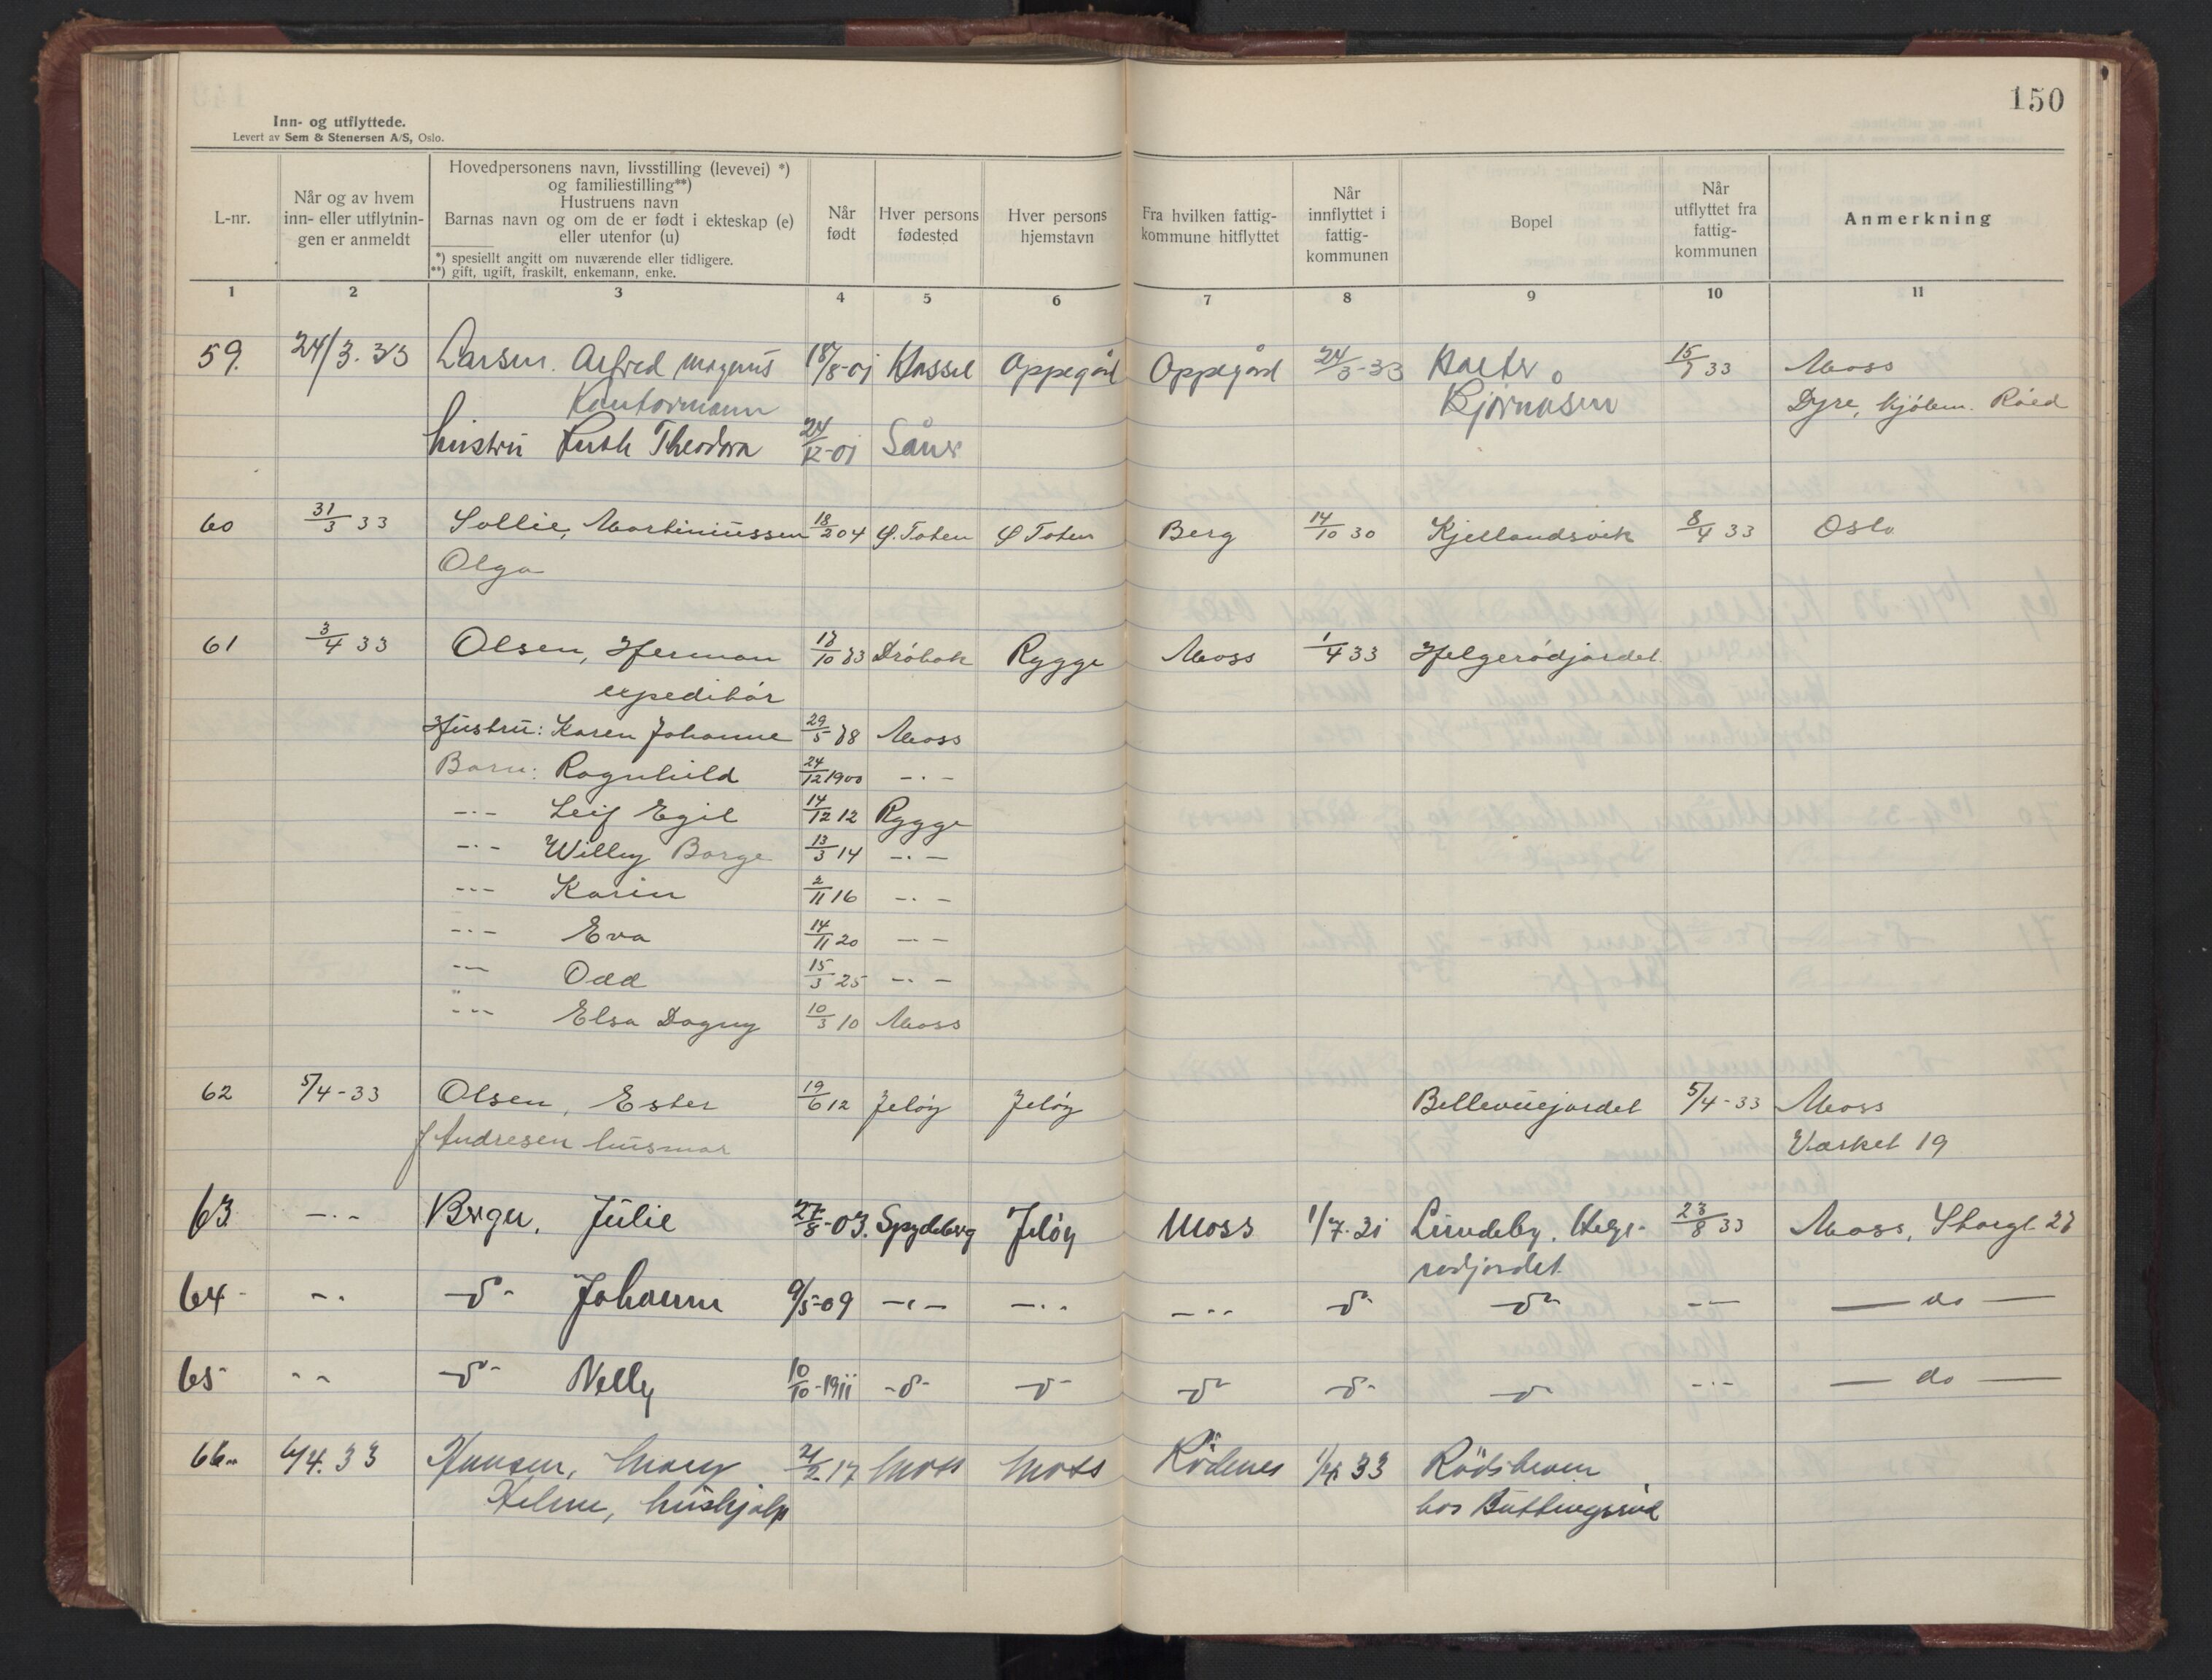 150
Inn- og utflyttede.
Levert av Sem & Stenersen A/S, Oslo.
L-nr.
Når og av hvem inn- eller utflytnin- gen er anmeldt
Hovedpersonens navn, livsstilling (levevei) *)
og familiestilling**)
Hustruens navn
Barnas navn og om de er født i ekteskap (e)
eller utenfor (u)
*) spesiellt angitt om nuværende eller tidligere.
**) gift, ugift, fraskilt, enkemann, enke.
Når født
Hver persons fødested
Hver persons hjemstavn
Fra hvilken fattig- kommune hitflyttet
Når innflyttet i fattig- kommunen
Bopel
Når utflyttet fra fattig- kommunen
Anmerkning
1 2 3 4 5 6 7 8 9 10 11
59. 24/3. 33 Larsen. Alfred Magnus 18/8-01 Hassel Oppegård Oppegård 24/3-33 15/7 33 Moss
Kontormann Bjørnåsen Dyre, Kjølem. Råed
hustru Ruth Theodora 24/12-01 Såner
60 31/3 33 Sollie, Martiniussen 18/2 04 Ø. Toten Ø Toten Berg 14/10 30 Kjellandsvik 8/4 33 Oslo
Olga
61 3/4 33 Olsen, Herman 17/10 83 Drøbak Rygge Moss 1/4 33 Helgerødjordet
expeditør
Hustru: Karen Johanne 29/5 88 Moss
Barn: Ragnhild 24/12 1900 -·-
-·- Leif Egil 14/12 12 Rygge
-·- Willy Borge 13/3 14 -·-
-·- Karin 2/11 16 -·-
-·- Eva 14/11 20 -·-
-·- Odd 15/3 25 -·-
-·- Elsa Dagny 10/3 10 Moss
62 5/4-33 Olsen, Ester 19/6 12 Jeløy Jeløy Bellevuejordet 5/4-33 Moss
f Andresen husmor Værket 19
63 -·- Berger, Julie 27/8-03. Spydeberg Jeløy Moss 1/7-31 Lundeby. Helge- 23/8 33 Moss, Storgt. 23
rødjordet
64 -·- -d- Johanne 9/5-09 -·- -·- -·- -d- -d- -·- — do —
65 -·- -d- Nelly 10/10-1911 -d- -d- -d- -d- -d- -·- — do —
66 6/4. 33 Hansen, Mary 21/2-17 Moss Moss Rödenes 1/4 33 Rödsheim
Helene, hushjelp hos Buttingsrud